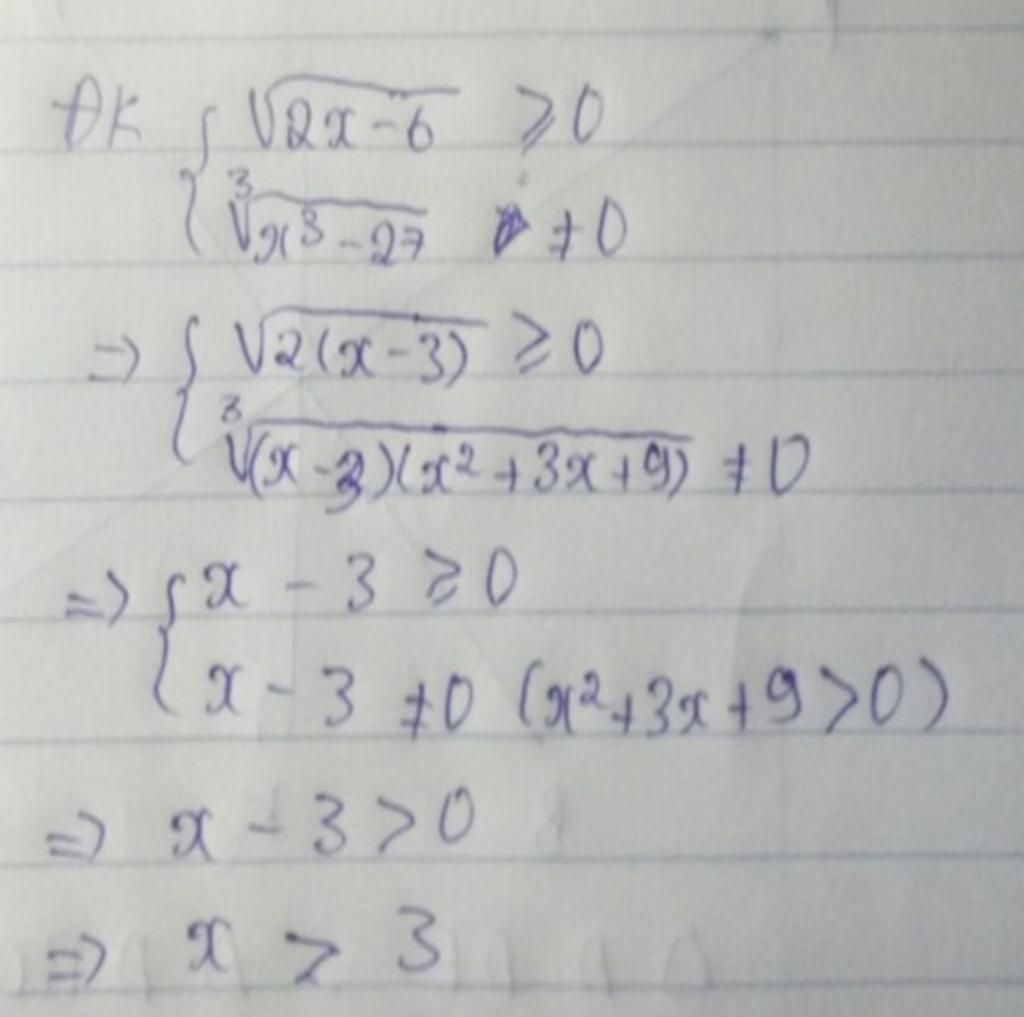 ĐK { √(2x-6) ≥ 0
∛(x³-27) ≠ 0
=> { √(2(x-3)) ≥ 0
∛((x-3)(x²+3x+9)) ≠ 0
=> { x - 3 ≥ 0
x - 3 ≠ 0 (x²+3x+9>0)
=> x - 3 > 0
=> x > 3